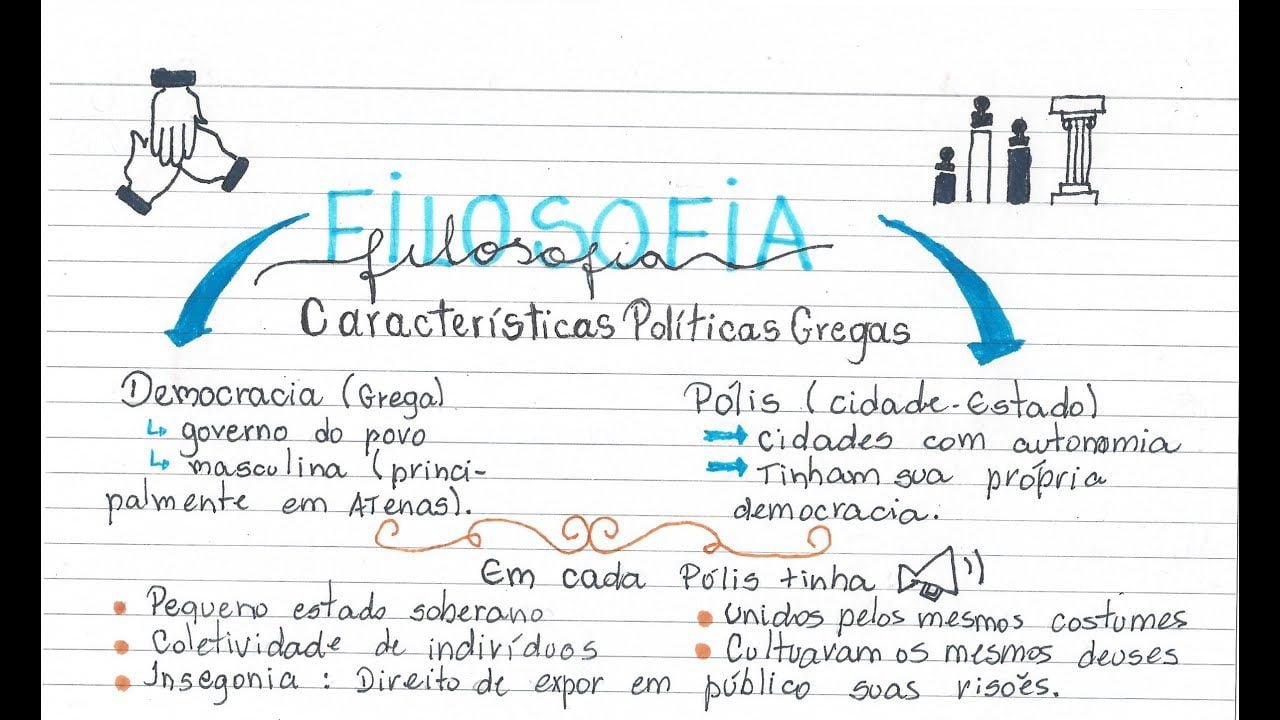 FiLOSOFiA
filosofia
Características Políticas Gregas
Democracia (Grega)
governo do povo
masculina (princi-
palmente em Atenas).
Pólis (cidade-Estado)
cidades com autonomia
Tinham sua própria
democracia.
Em cada Pólis tinha
Pequeno estado soberano
Coletividade de indivíduos
Insegonia : Direito de expor em público suas risões.
Unidos pelos mesmos costumes
Cultuavam os mesmos deuses